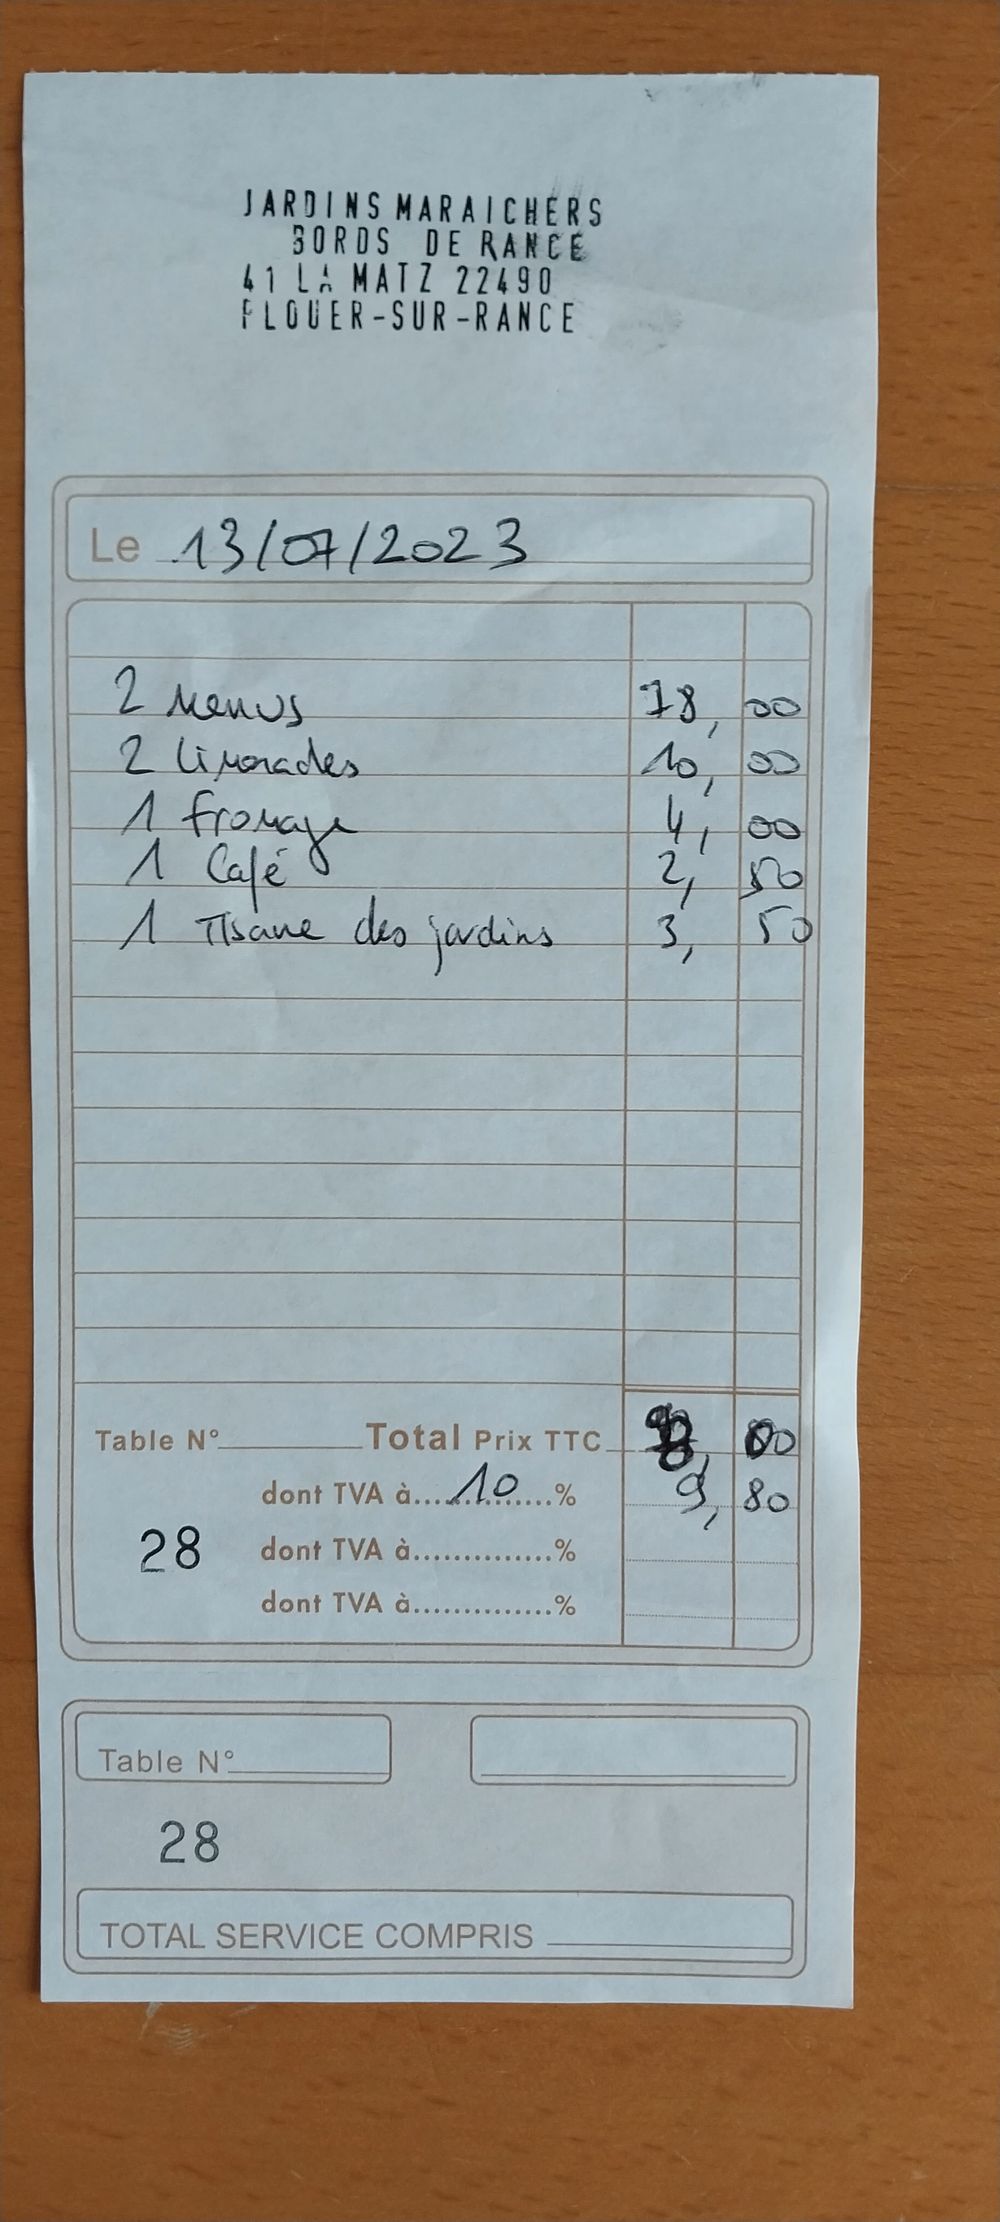 JARDINS MARAICHERS
BORDS DE RANCE
41 LA MATZ 22490
PLOUER-SUR-RANCE
Le 13/07/2023
2 Menus 78, 00
2 Limonades 10, 00
1 fromage 4, 00
1 Café 2, 50
1 Tisane des jardins 3, 50
Table N° Total Prix TTC 00
dont TVA à 10 % 9, 80
28 dont TVA à %
dont TVA à %
Table N°
28
TOTAL SERVICE COMPRIS